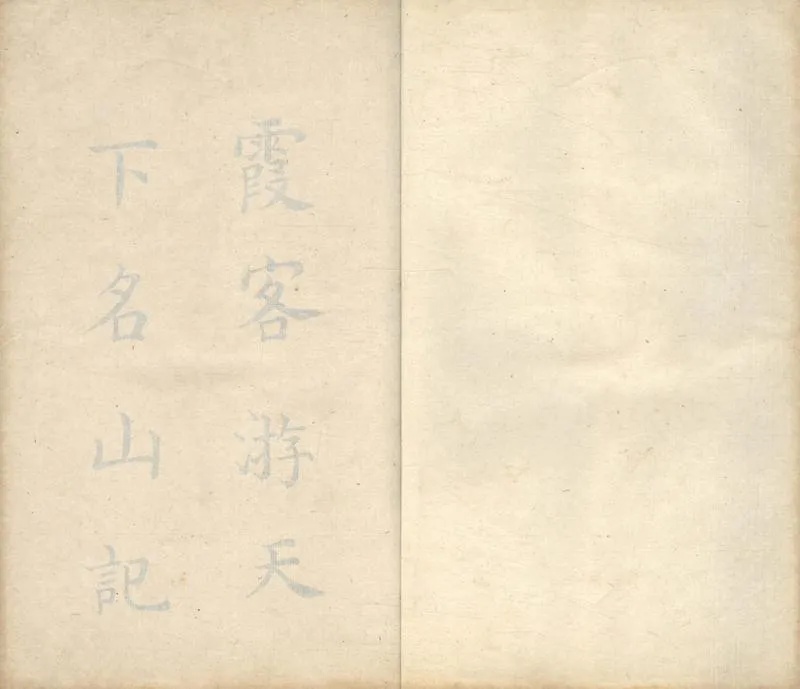 霞客游天
下名山記